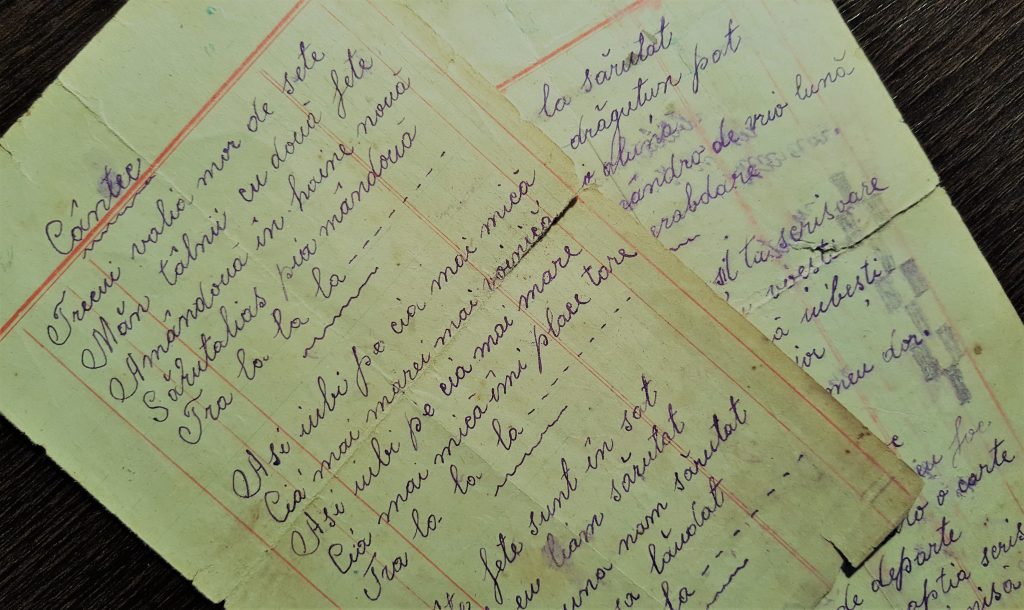 Cântec
Trecui valia mor de sete
Măn tâlnii cu două fete
Amândoua în haine nouă
Sărutalias pia mândouă
Tra la la la - - - - -
Asi iubi pe cia mai mică
Cia mai marei mai voinică
Asi iubi pe cia mai mare
Cia mai mică îmi place tare
Tra la la la - - - - -
fete sunt în sat
eu liam sărutat
una nam sărutat
lăudat
la - - - -
la sărutat
drăgutun pat
o alună
săndro de vrio lună
erabdare
sl ta scrisoare
vresti
că iubesti
meu dor.
eu foc
o carte
de departe
scris